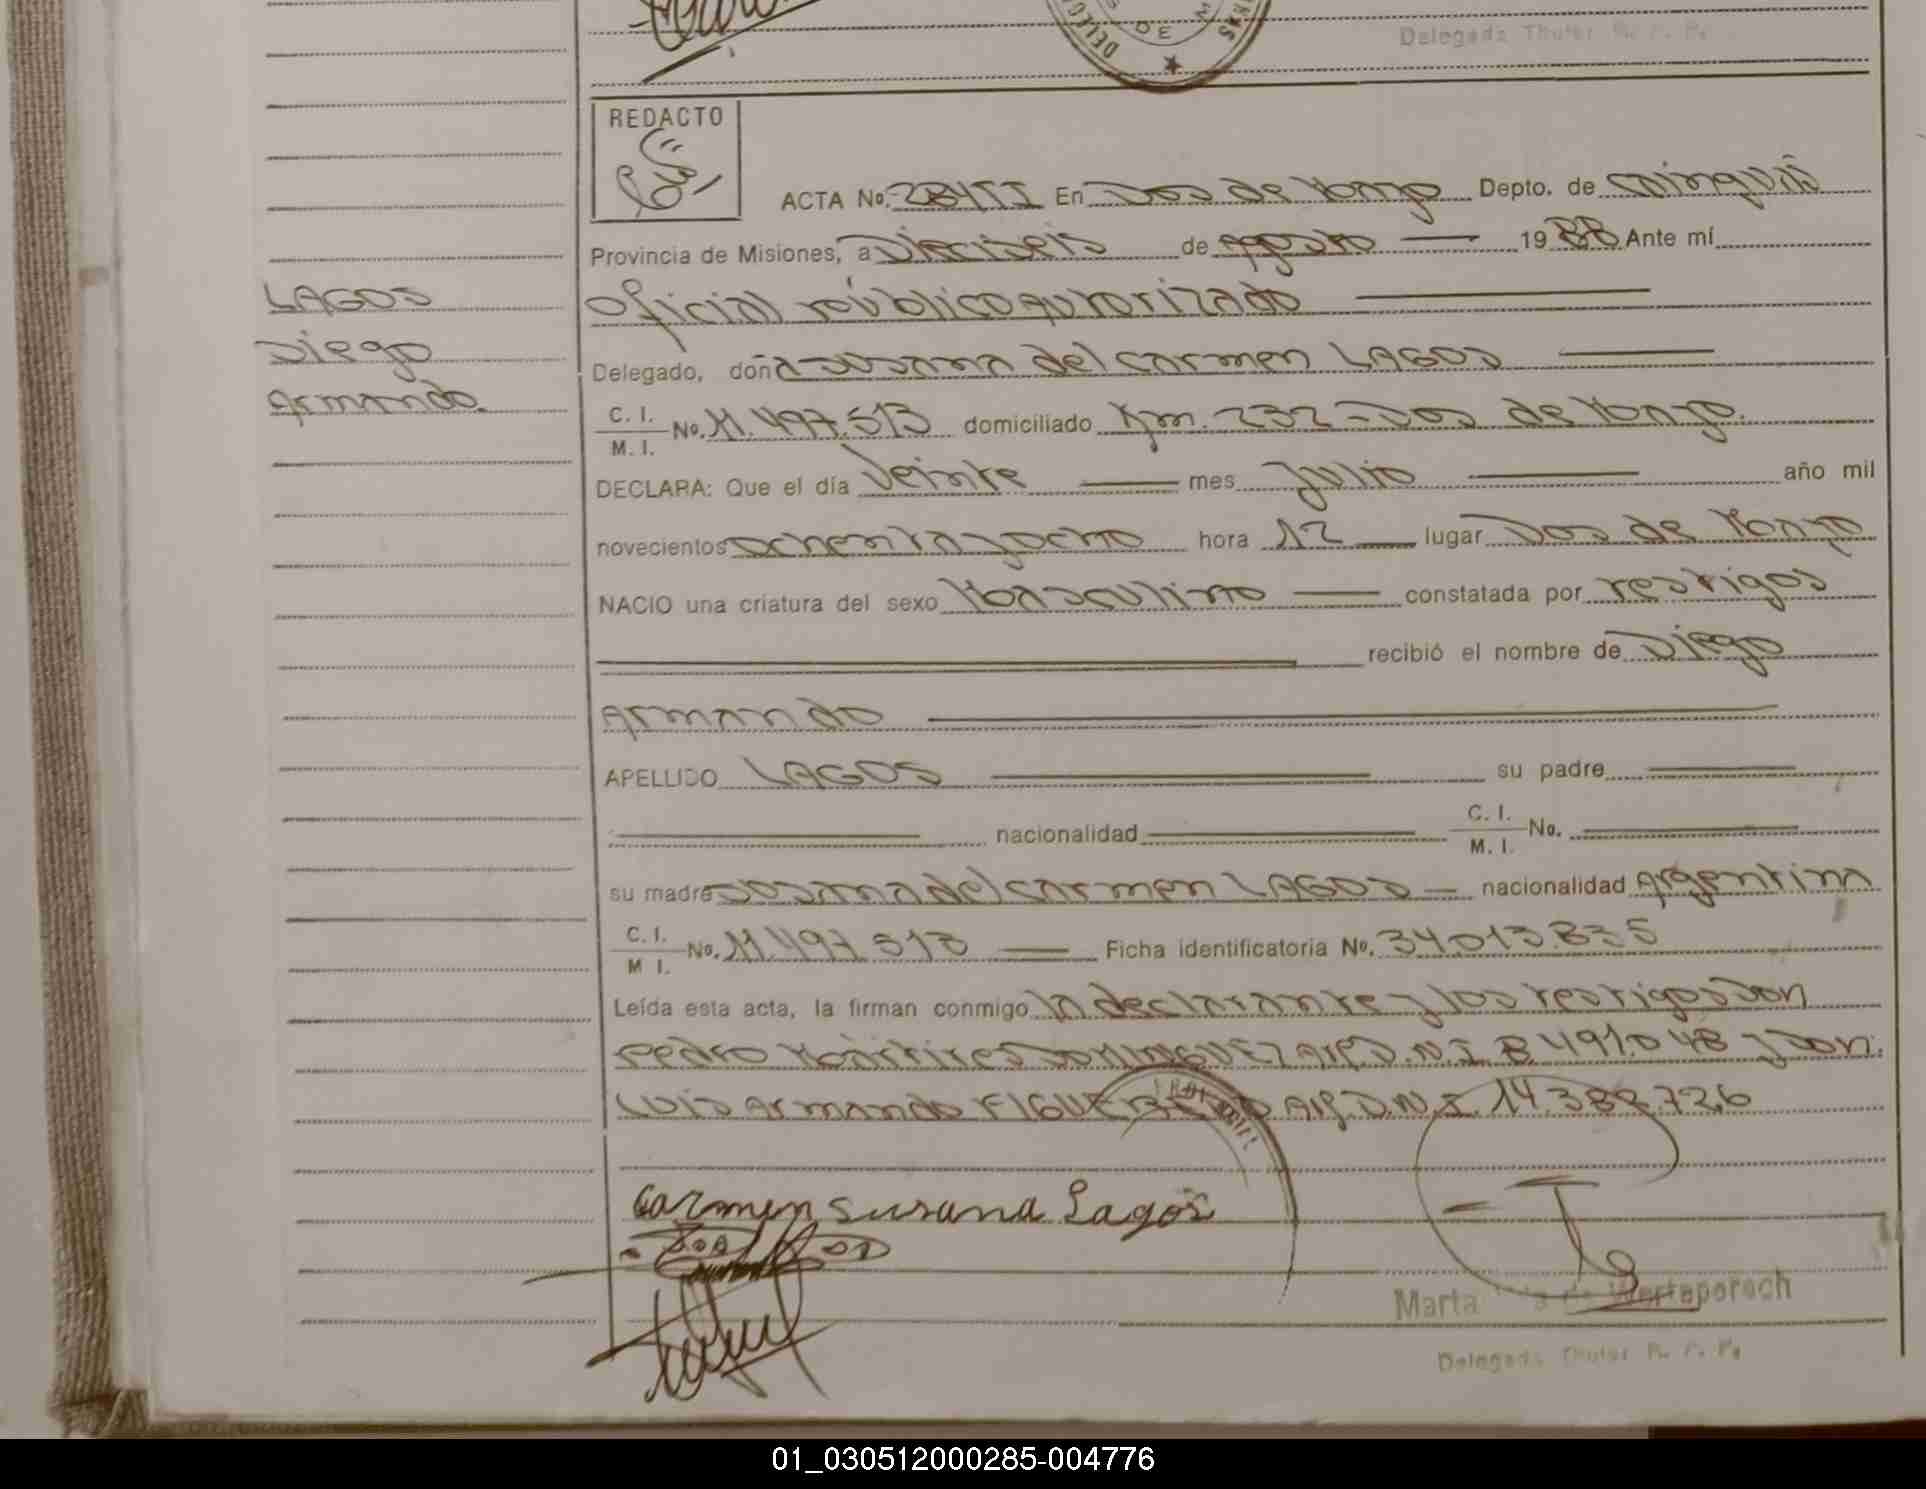 DELEGA
DE
RAS
Delegada Titular R. P. P.
REDACTO
ACTA No. 284TI En Dos de Mayo Depto. de Cainguás
Provincia de Misiones, a Dieciseis de Agosto 1988 Ante mí
Oficial público autorizado
LAGOS
Diego
Armando.
Delegado, doña Susana del Carmen LAGOS
C. I.
M. I. No. 11.497.513 domiciliado Km. 232 - Dos de Mayo.
DECLARA: Que el día Veinte mes Julio año mil
novecientos ochenta y ocho hora 12 lugar Dos de Mayo
NACIO una criatura del sexo Masculino constatada por testigos
recibió el nombre de Diego
Armando
APELLIDO LAGOS su padre
nacionalidad C. I.
M. I. No.
su madre Susana del Carmen LAGOS nacionalidad Argentina
C. I.
M I. No. 11.497.513 Ficha identificatoria No. 34.013.835
Leída esta acta, la firman conmigo la declarante y los testigos Don
Pedro Mártires DOMINGUEZ Arg. D.N.I. 8.491.048 y Don
Luis Armando FIGUEREDO Arg. D.N.I. 14.382.726
Carmen Susana Lagos
Marta de Wertaporoch
Delegada Titular R. P. P.
01_030512000285-004776